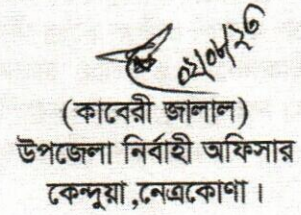 ০২/০৮/২৩
(কাবেরী জালাল)
উপজেলা নির্বাহী অফিসার
কেন্দুয়া ,নেত্রকোণা ।